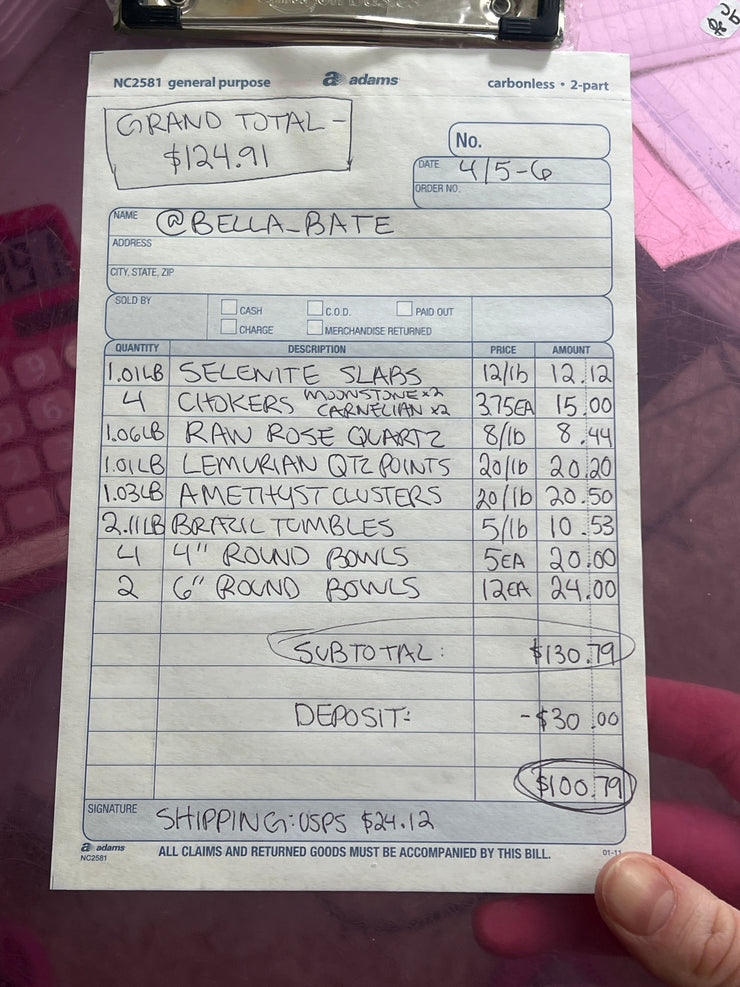 NC2581 general purpose a adams carbonless • 2-part
GRAND TOTAL -
$124.91
No.
DATE 4/5-6
ORDER NO.
NAME @BELLA_BATE
ADDRESS
CITY, STATE, ZIP
SOLD BY
CASH C.O.D. PAID OUT
CHARGE MERCHANDISE RETURNED
QUANTITY DESCRIPTION PRICE AMOUNT
1.01LB SELENITE SLABS 12/lb 12.12
4 CHOKERS MOONSTONE x2 CARNELIAN x2 3.75EA 15.00
1.06LB RAW ROSE QUARTZ 8/lb 8.44
1.01LB LEMURIAN QTZ POINTS 20/lb 20.20
1.03LB AMETHYST CLUSTERS 20/lb 20.50
2.11LB BRAZIL TUMBLES 5/lb 10.53
4 4" ROUND BOWLS 5EA 20.00
2 6" ROUND BOWLS 12EA 24.00
SUBTOTAL: $130.79
DEPOSIT: -$30.00
$100.79
SIGNATURE SHIPPING: USPS $24.12
a adams
NC2581 ALL CLAIMS AND RETURNED GOODS MUST BE ACCOMPANIED BY THIS BILL. 01-11